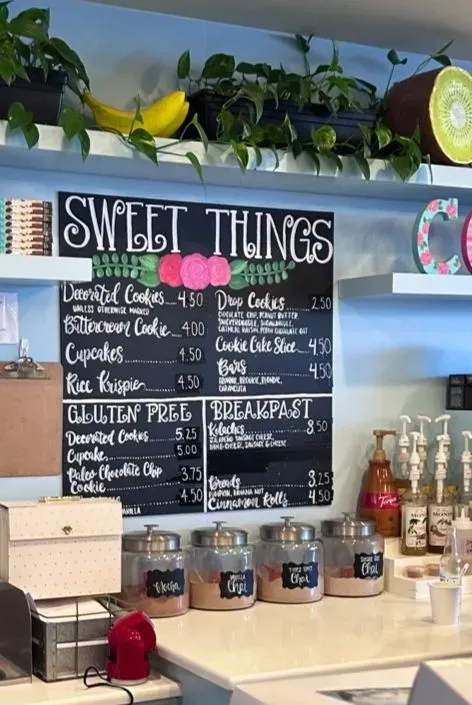 SWEET THINGS
Decorated Cookies 4.50
UNLESS OTHERWISE MARKED
Buttercream Cookie 4.00
Cupcakes 4.50
Rice Krispie 4.50
Drop Cookies 2.50
CHOCOLATE CHIP, PEANUT BUTTER,
SNICKERDOODLE, SUGARDOODLE,
OATMEAL RAISIN, PECAN CHOCOLATE OAT
Cookie Cake Slice 4.50
Bars 4.50
BROWNIE, BROOKIE, BLONDIE,
GLUTEN FREE
Decorated Cookies 5.25
Cupcake 5.00
Paleo Chocolate Chip
Cookie 3.75
4.50
BREAKFAST
Kolaches 8.50
JALAPENO SAUSAGE CHEESE,
SAUSAGE & CHEESE
Breads 3.25
PUMPKIN, BANANA NUT
Cinnamon Rolls 4.50
C
Mocha
Vanilla
Chai
Chai
Chai
Torani